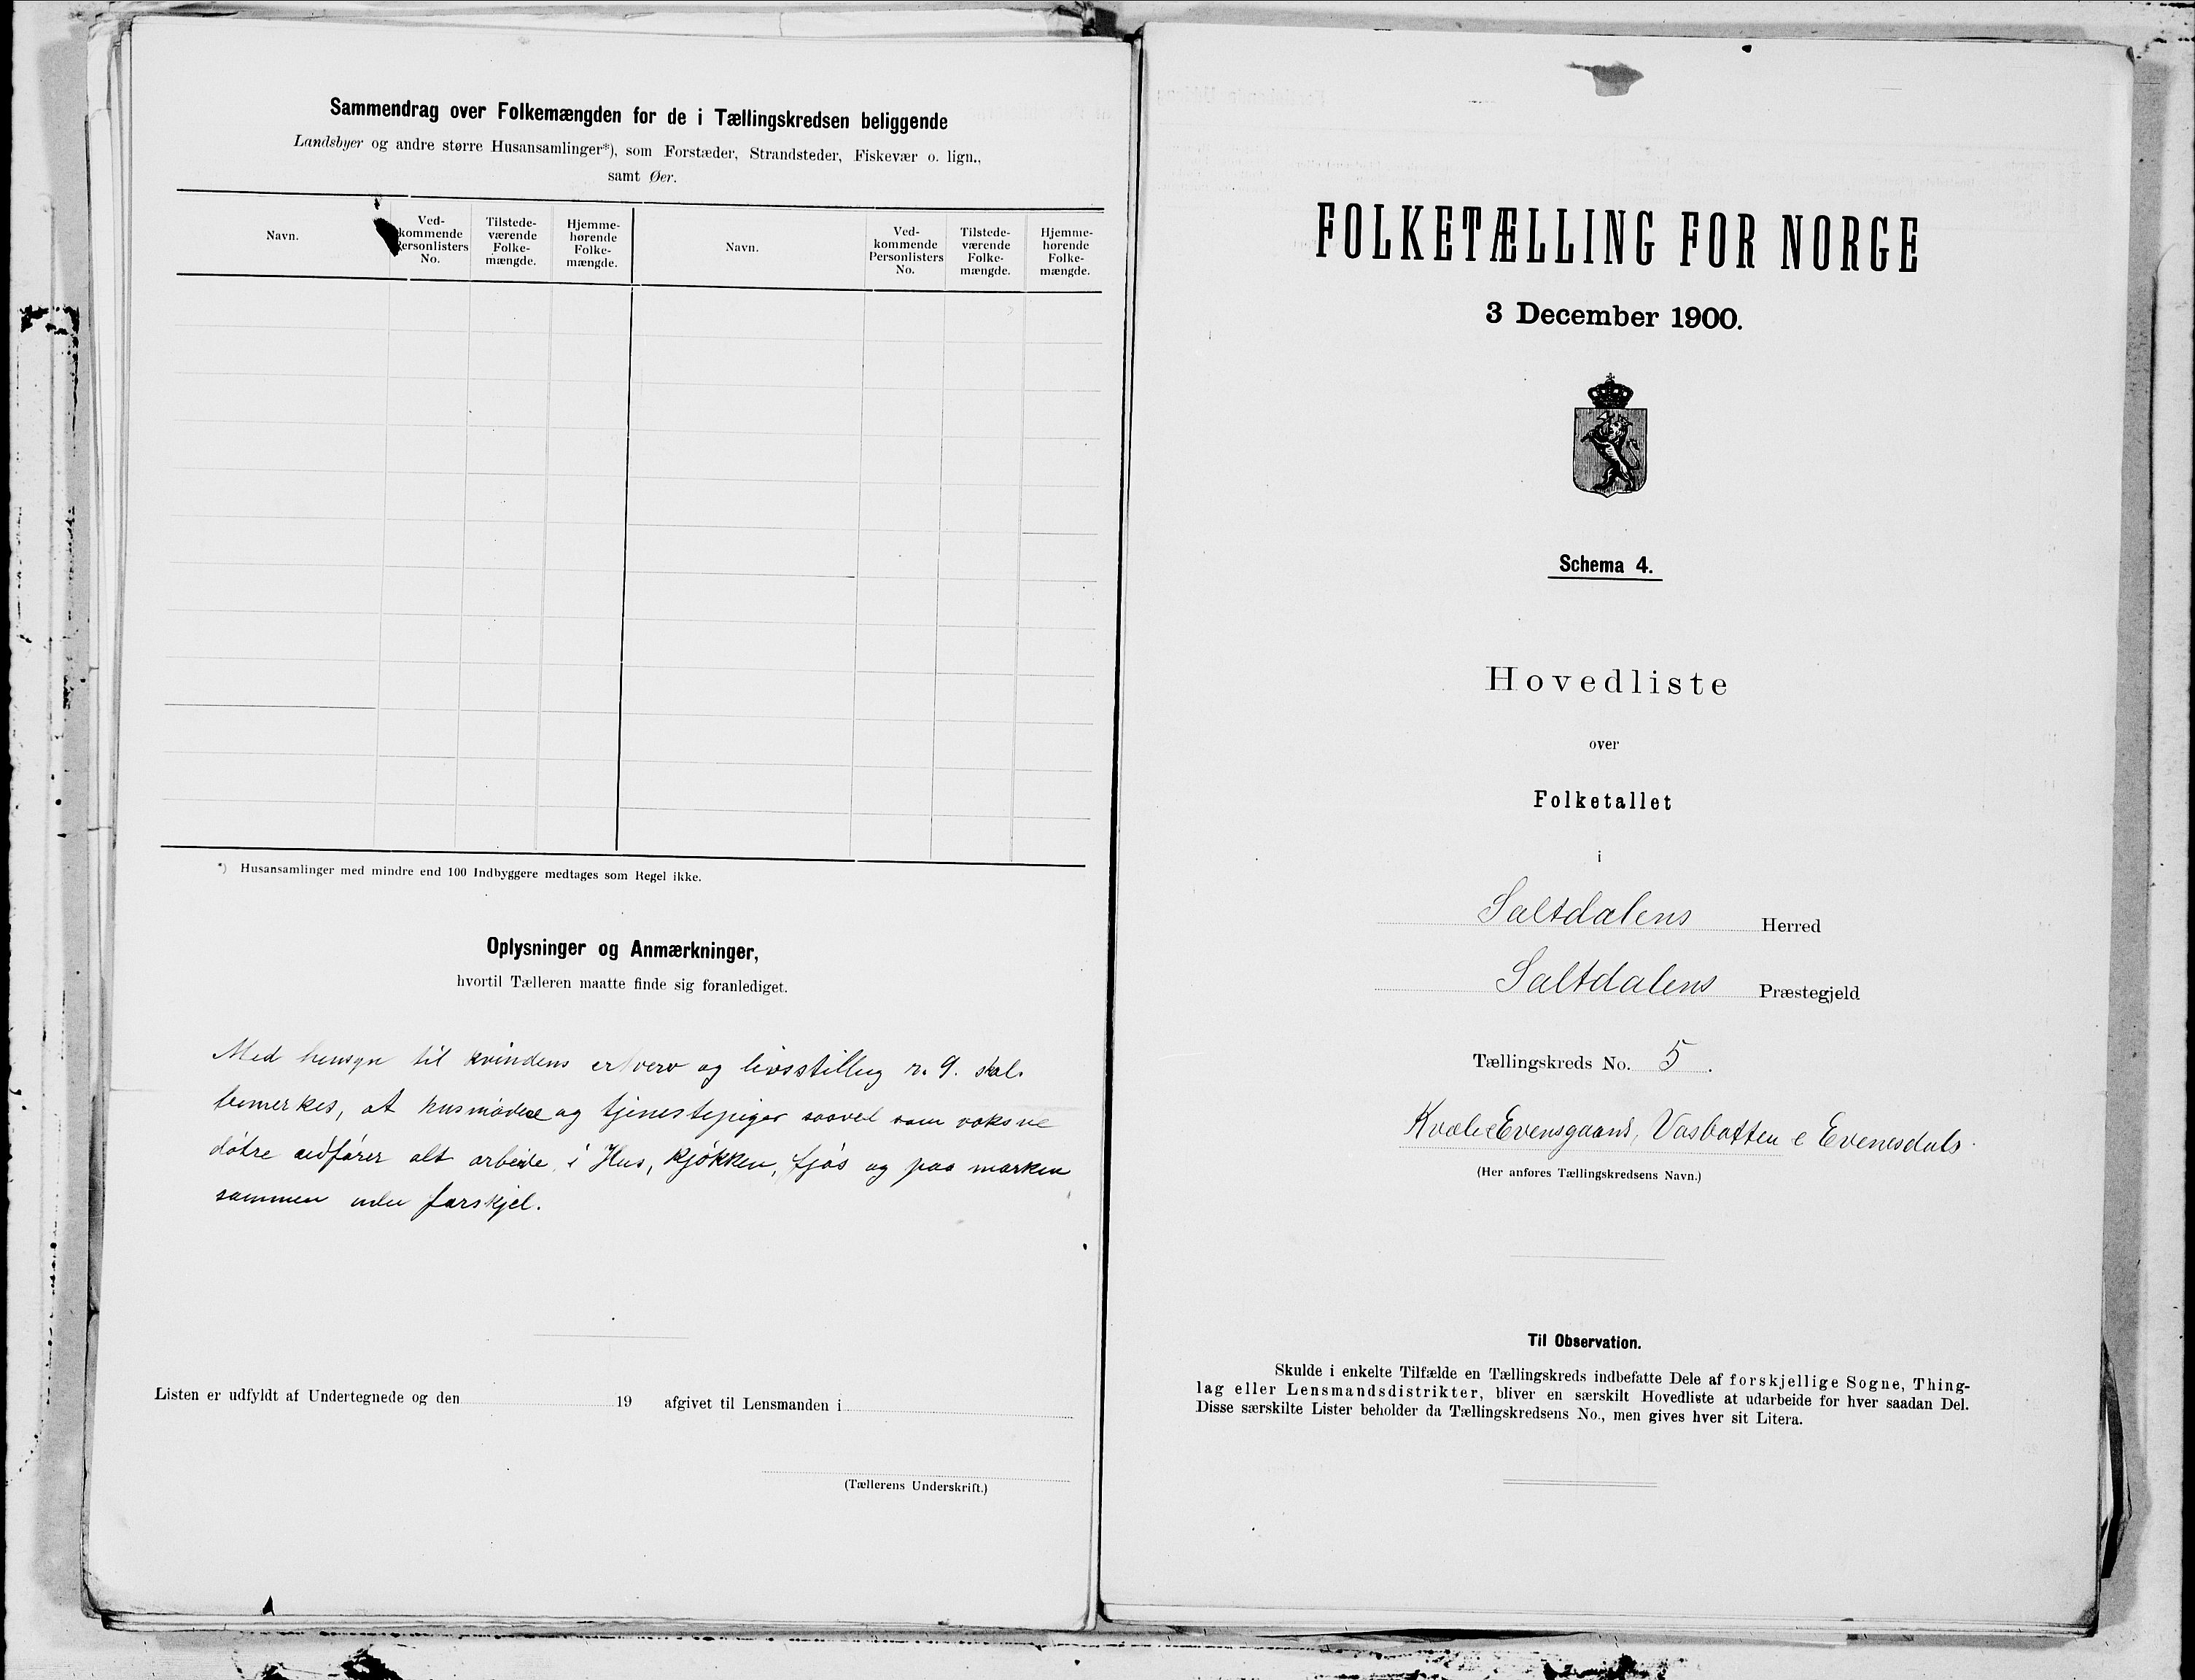 Sammendrag over Folkemængden for de i Tællingskredsen beliggende
Landsbyer og andre større Husansamlinger*), som Forstæder, Strandsteder, Fiskevær o. lign.,
samt Øer.
Navn.
Ved-
kommende
Personlisters
No.
Tilstede-
værende
Folke-
mængde.
Hjemme-
hørende
Folke-
mængde.
Navn.
Ved-
kommende
Personlisters
No.
Tilstede-
værende
Folke-
mængde.
Hjemme-
hørende
Folke-
mængde.
*) Husansamlinger med mindre end 100 Indbyggere medtages som Regel ikke.
Oplysninger og Anmærkninger,
hvortil Tælleren maatte finde sig foranlediget.
Med hensyn til kvindens erhverv og livsstilling r. 9. skal
bemerkes, at husmødre og tjenestepiger saavel som voksne
døtre udfører alt arbeide i Hus, kjøkken, fjøs og paa marken
sammen uden forskjel.
Listen er udfyldt af Undertegnede og den 19 afgivet til Lensmanden i
(Tællerens Underskrift.)
FOLKETÆLLING FOR NORGE
3 December 1900.
Schema 4.
Hovedliste
over
Folketallet
i
Saltdalens Herred
Saltdalens Præstegjeld
Tællingskreds No. 5.
Evensgaard, Vasbotten Evenesdals
(Her anføres Tællingskredsens Navn.)
Til Observation.
Skulde i enkelte Tilfælde en Tællingskreds indbefatte Dele af forskjellige Sogne, Thing-
lag eller Lensmandsdistrikter, bliver en særskilt Hovedliste at udarbeide for hver saadan Del.
Disse særskilte Lister beholder da Tællingskredsens No., men gives hver sit Litera.